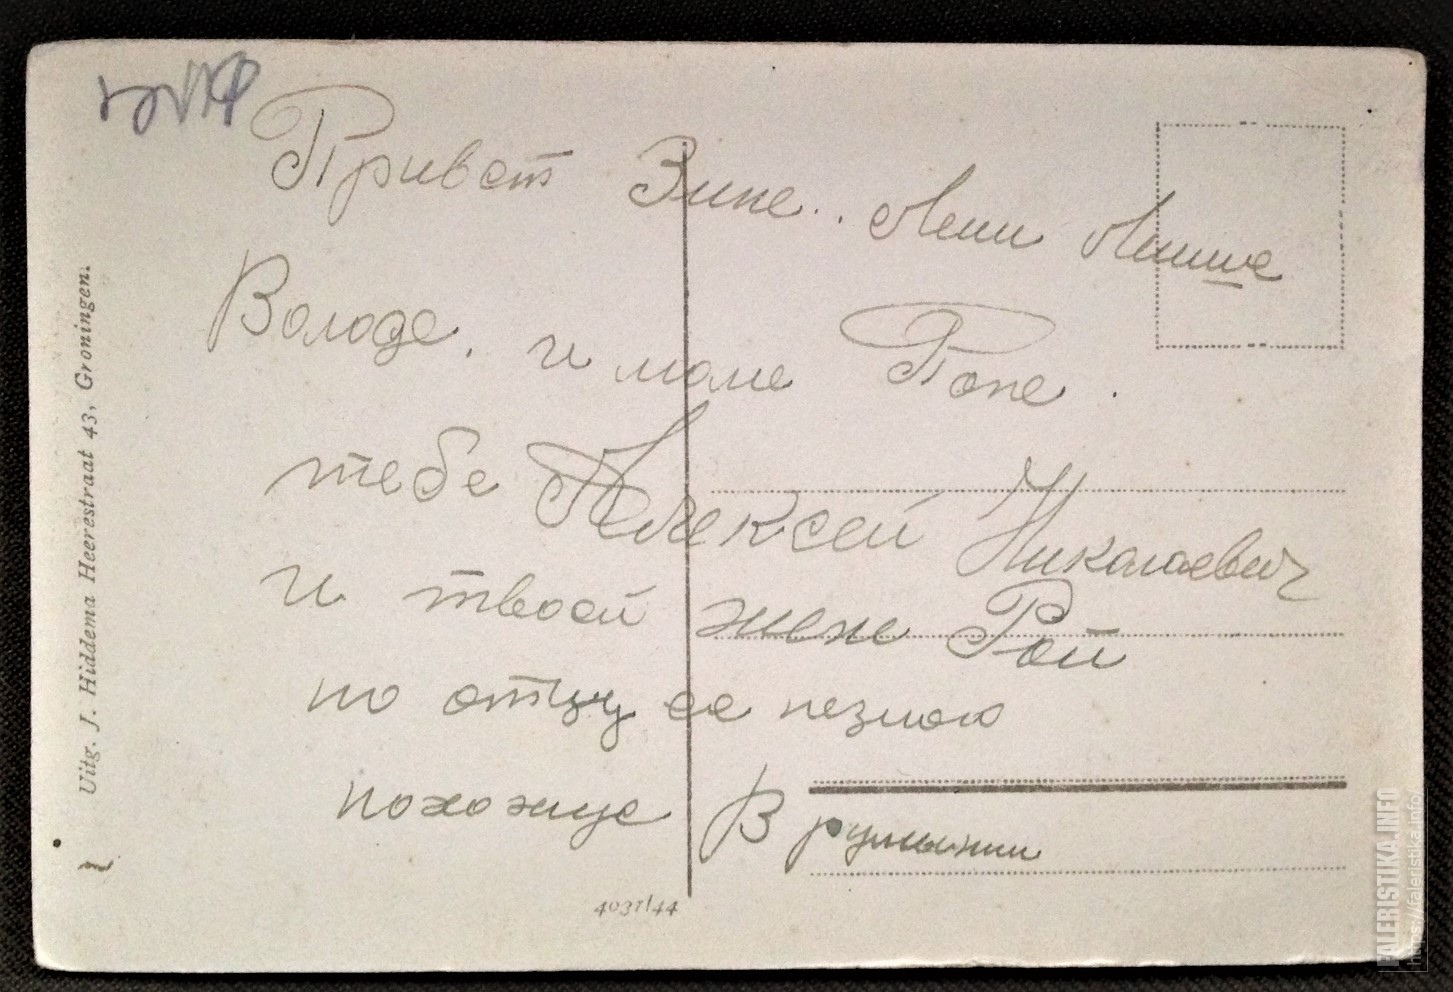 Привет Зине.. Лени Мише
Володе. и маме Тоне.
тебе Алексей Николаевич
и твоей жене Рой
по отцу ее незнаю
похожце В румынии
Uitg. J. Hiddema Heerestraat 43, Groningen.
4037/44
FALERISTIKA.INFO
https://faleristika.info